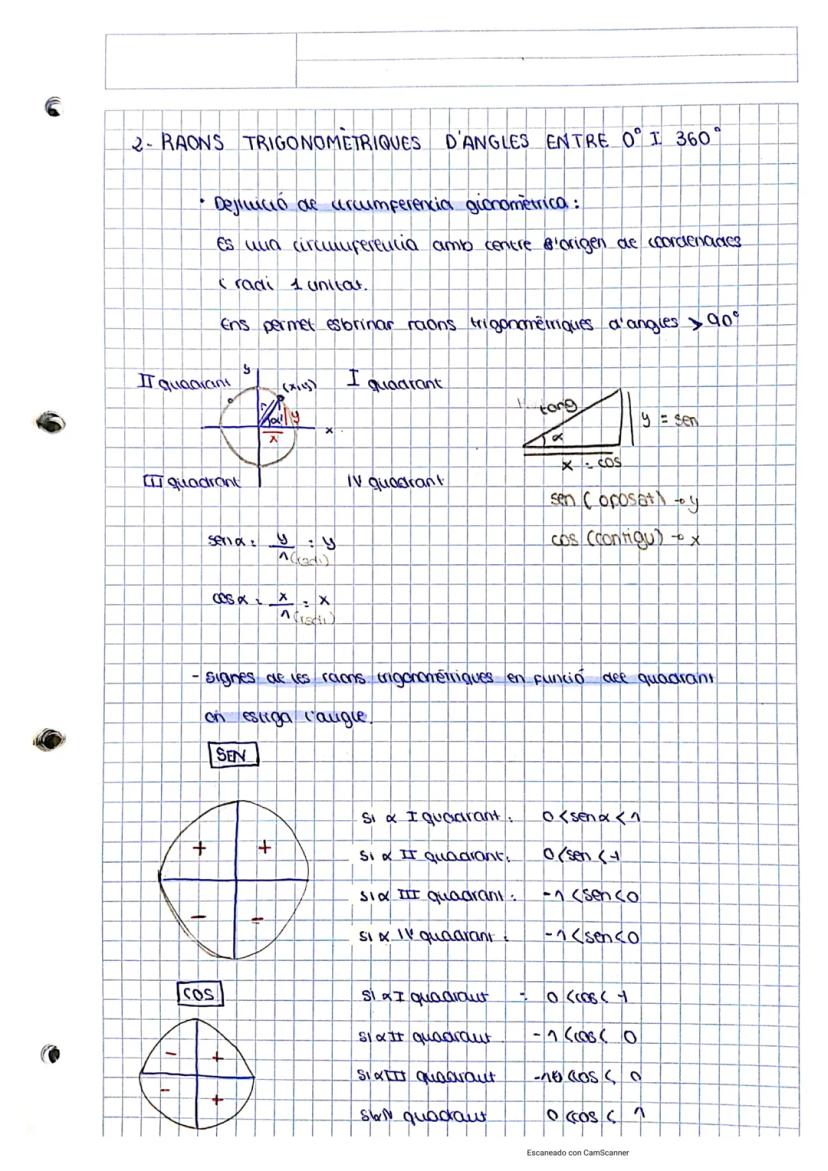 2- RAONS TRIGONOMÈTRIQUES D'ANGLES ENTRE 0° I 360°
• Definició de circumferencia gionomètrica:
Es una circumferencia amb centre l'origen de coordenades
i radi 1 unitat.
Ens permet esbrinar raons trigonomètriques d'angles > 90°
II quadrant
y
(x,y)
I quadrant
α
y
x
x
tang
α
y = sen
x = cos
III quadrant
IV quadrant
sen (oposat) → y
cos (contigu) → x
sen α = y/1 (radi) = y
cos α = x/1 (radi) = x
- Signes de les raons trigonomètriques en funció del quadrant
on estiga l'angle.
SEN
+ +
- -
Si α I quadrant: 0 < sen α < 1
Si α II quadrant: 0 < sen < 1
Si α III quadrant: -1 < sen < 0
Si α IV quadrant: -1 < sen < 0
COS
- +
- +
Si α I quadrant : 0 < cos < 1
Si α II quadrant -1 < cos < 0
Si α III quadrant -1 < cos < 0
Si α IV quadrant 0 < cos < 1
Escaneado con CamScanner